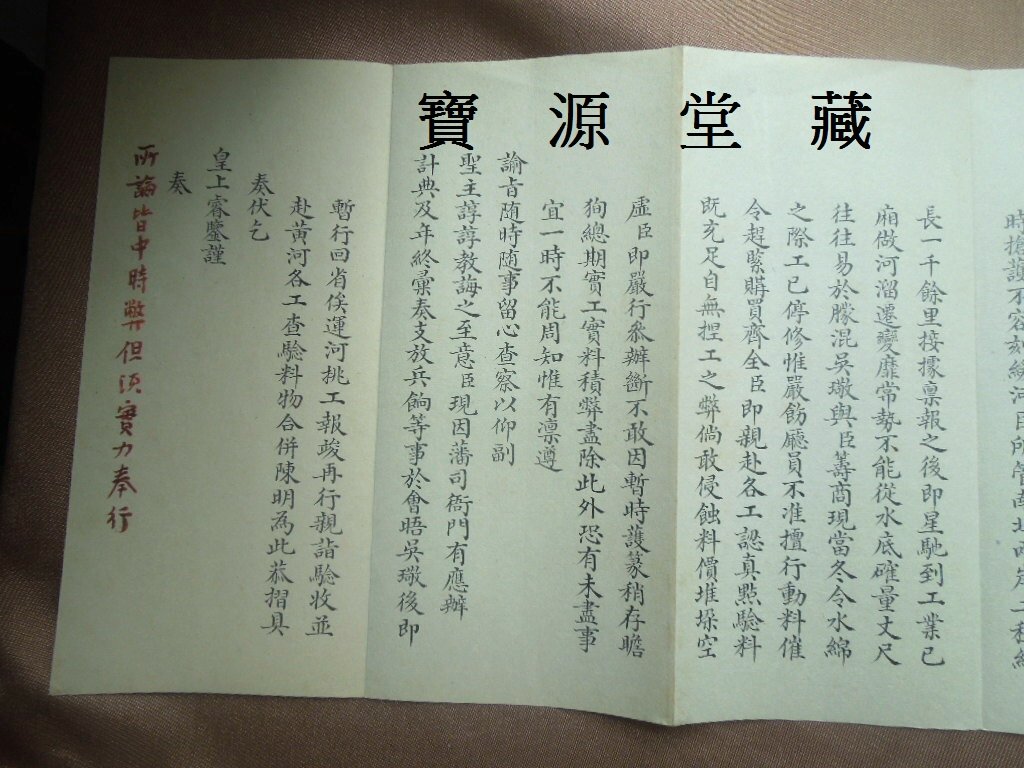 寶源堂藏
時搶護不容刻緩河臣所管南北兩岸工程綿
長一千餘里接據稟報之後即星馳到工業已
廂做河溜遷變靡常勢不能從水底確量丈尺
往往易於朦混吳璥與臣籌商現當冬令水綿
之際工已停修惟嚴飭廳員不准擅行動料催
令趕緊購買齊全臣即親赴各工認真點驗料
既充足自無捏工之弊倘敢侵蝕料價堆垛空
虛臣即嚴行叅辦斷不敢因暫時護篆稍存瞻
狥總期實工實料積弊盡除此外恐有未盡事
宜一時不能周知惟有凛遵
諭旨随時随事留心查察以仰副
聖主諄諄教誨之至意臣現因藩司衙門有應辦
計典及年終彙奏支放兵餉等事於會晤吳璥後即
暫行回省俟運河挑工報竣再行親詣驗收並
赴黃河各工查驗料物合併陳明為此恭摺具
奏伏乞
皇上睿鑒謹
奏
所論皆中時弊但須實力奉行